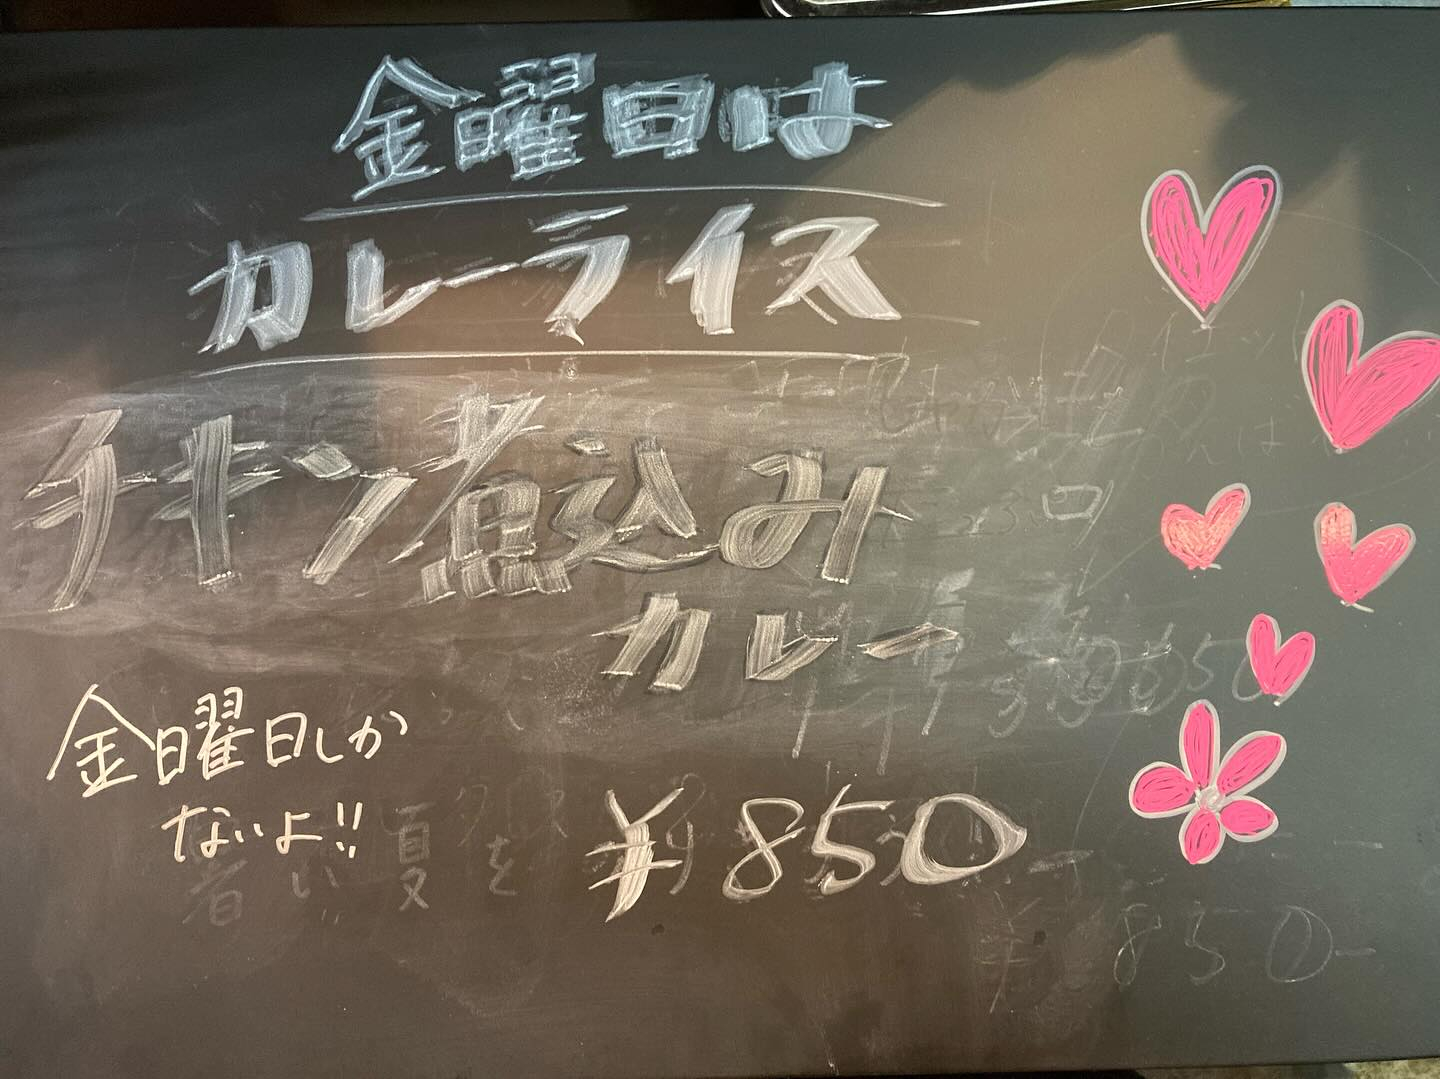 金曜日は
カレーライス
チキン煮込み
カレー
金曜日しか
ないよ!!
¥850
夏を
¥850-